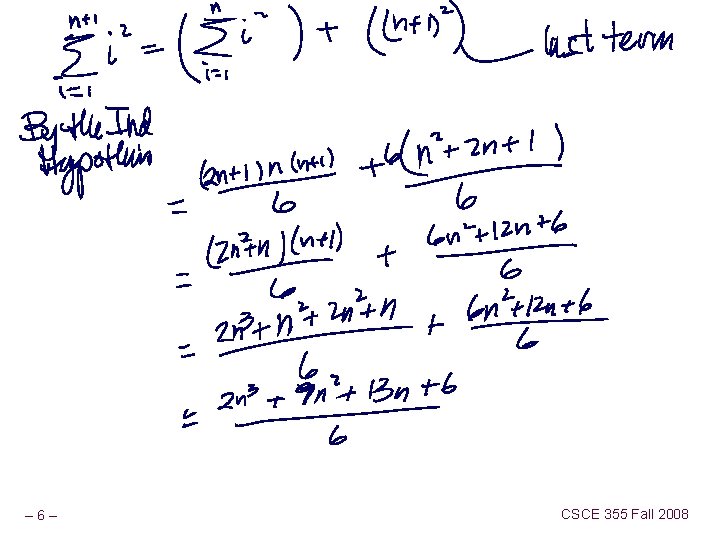 n+1∑i=1 i² = ( n∑i=1 i² ) + ((n+1)²) last term
By the Ind
Hypothesis
= (2n+1) n (n+1) / 6 + 6(n² + 2n + 1) / 6
= (2n²+n)(n+1) / 6 + 6n²+12n+6 / 6
= 2n³ + n² + 2n² + n / 6 + 6n²+12n+6 / 6
= 2n³ + 9n² + 13n + 6 / 6
– 6 –
CSCE 355 Fall 2008